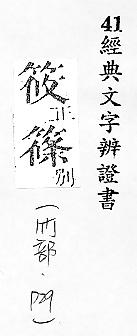 41經典文字辨證書
筱正
篠別
(竹部.)